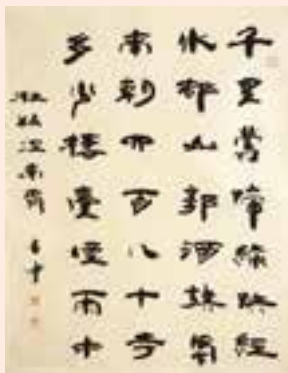 千里鶯啼綠映紅
水邨山郭酒旗風
南朝四百八十寺
多少樓臺煙雨中
杜牧